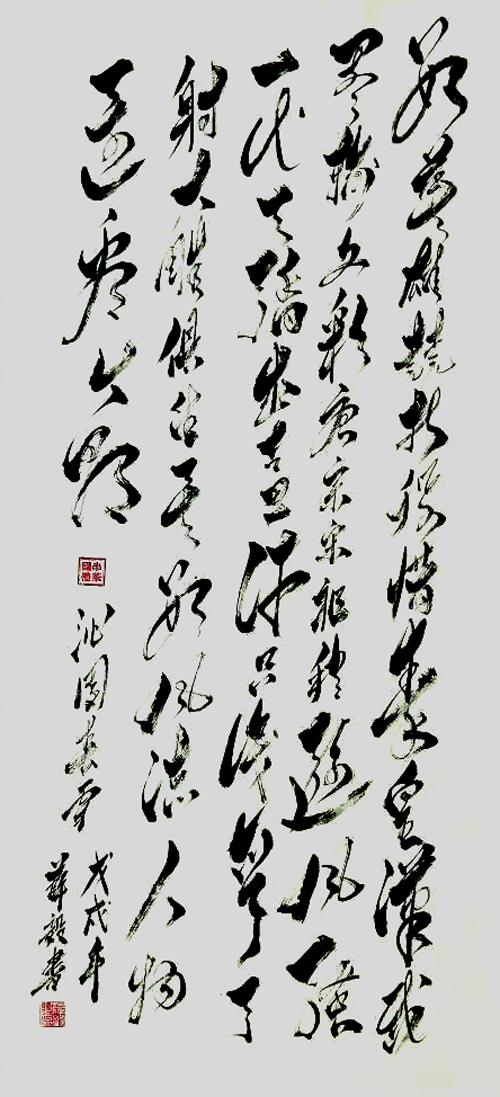 数英雄競折腰惜秦皇漢武
略輸文彩唐宗宋祖稍遜风骚
一代天驕成吉思汗只識弯弓
射大雕俱往矣数风流人物
还看今朝
沁園春雪
戊戌年
書